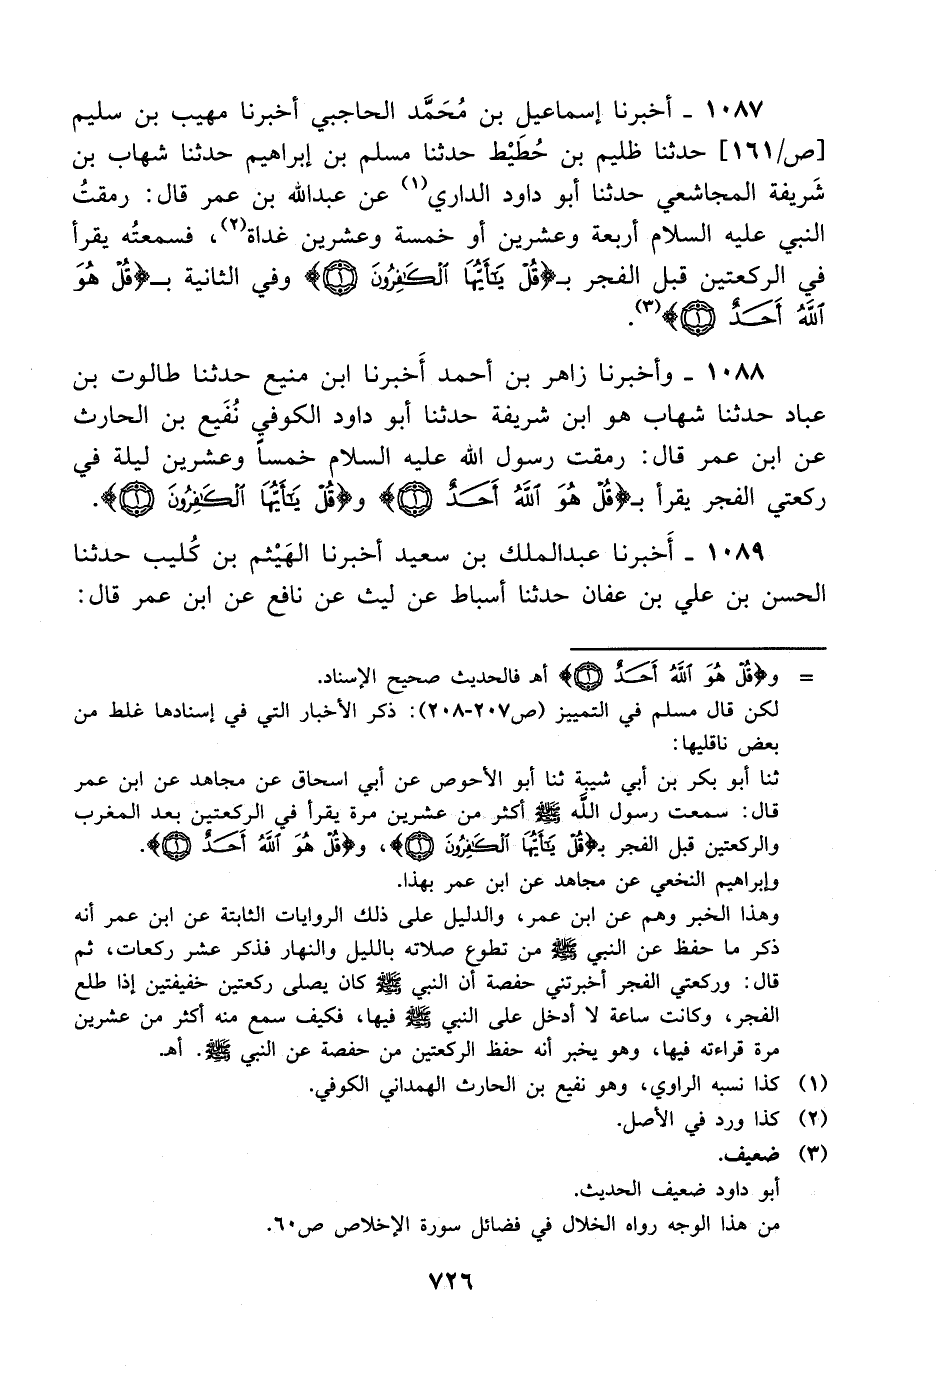 ١٠٨٧ ـ أخبرنا إسماعيل بن مُحَمَّد الحاجبي أخبرنا مهيب بن سليم
[ص/١٦١] حدثنا ظليم بن حُطَيْط حدثنا مسلم بن إبراهيم حدثنا شهاب بن
شَريفة المجاشعي حدثنا أبو داود الداري(١) عن عبدالله بن عمر قال: رمقتُ
النبي عليه السلام أربعة وعشرين أو خمسة وعشرين غداة(٢)، فسمعتُه يقرأ
في الركعتين قبل الفجر بـ﴿قُلْ يَٰٓأَيُّهَا ٱلْكَٰفِرُونَ ۝١﴾ وفي الثانية بـ﴿قُلْ هُوَ
ٱللَّهُ أَحَدٌ ۝١﴾(٣).
١٠٨٨ ـ وأخبرنا زاهر بن أحمد أَخبرنا ابن منيع حدثنا طالوت بن
عباد حدثنا شهاب هو ابن شريفة حدثنا أبو داود الكوفي نُفَيع بن الحارث
عن ابن عمر قال: رمقت رسول الله عليه السلام خمساً وعشرين ليلة في
ركعتي الفجر يقرأ بـ﴿قُلْ هُوَ ٱللَّهُ أَحَدٌ ۝١﴾ و﴿قُلْ يَٰٓأَيُّهَا ٱلْكَٰفِرُونَ ۝١﴾.
١٠٨٩ ـ أَخبرنا عبدالملك بن سعيد أخبرنا الهَيْثم بن كُليب حدثنا
الحسن بن علي بن عفان حدثنا أسباط عن ليث عن نافع عن ابن عمر قال:
= و﴿قُلْ هُوَ ٱللَّهُ أَحَدٌ ۝١﴾ أهـ فالحديث صحيح الإسناد.
لكن قال مسلم في التمييز (ص٢٠٧-٢٠٨): ذكر الأخبار التي في إسنادها غلط من
بعض ناقليها:
ثنا أبو بكر بن أبي شيبة ثنا أبو الأحوص عن أبي اسحاق عن مجاهد عن ابن عمر
قال: سمعت رسول اللَّه ﷺ أكثر من عشرين مرة يقرأ في الركعتين بعد المغرب
والركعتين قبل الفجر بـ﴿قُلْ يَٰٓأَيُّهَا ٱلْكَٰفِرُونَ ۝١﴾، و﴿قُلْ هُوَ ٱللَّهُ أَحَدٌ ۝١﴾.
وإبراهيم النخعي عن مجاهد عن ابن عمر بهذا.
وهذا الخبر وهم عن ابن عمر، والدليل على ذلك الروايات الثابتة عن ابن عمر أنه
ذكر ما حفظ عن النبي ﷺ من تطوع صلاته بالليل والنهار فذكر عشر ركعات، ثم
قال: وركعتي الفجر أخبرتني حفصة أن النبي ﷺ كان يصلى ركعتين خفيفتين إذا طلع
الفجر، وكانت ساعة لا أدخل على النبي ﷺ فيها، فكيف سمع منه أكثر من عشرين
مرة قراءته فيها، وهو يخبر أنه حفظ الركعتين من حفصة عن النبي ﷺ. أهـ.
(١) كذا نسبه الراوي، وهو نفيع بن الحارث الهمداني الكوفي.
(٢) كذا ورد في الأصل.
(٣) ضعيف.
أبو داود ضعيف الحديث.
من هذا الوجه رواه الخلال في فضائل سورة الإخلاص ص٦٠.
٧٢٦